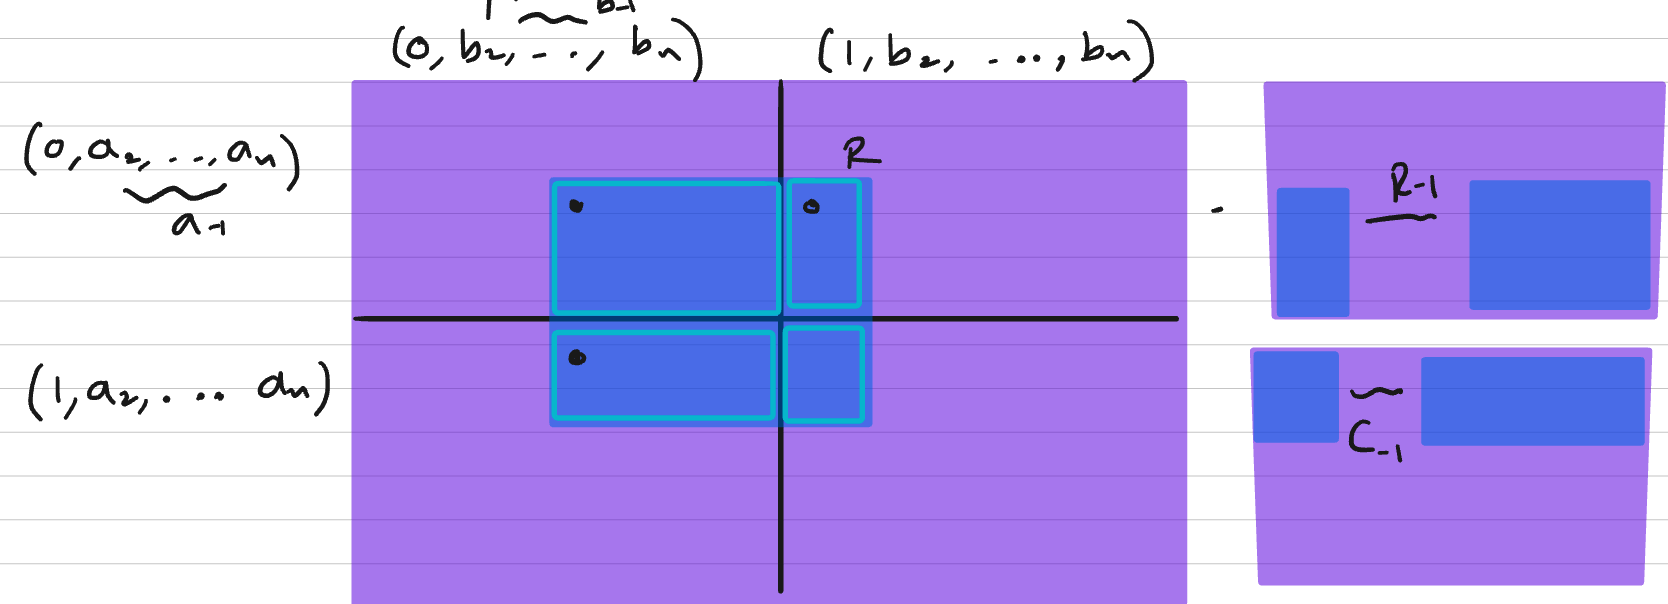 b-1
(0, b2, - . ., bn) (1, b2, . ..., bn)
(0, a2, . . ., an)
a-1
R
R-1
(1, a2, . .. an)
C-1